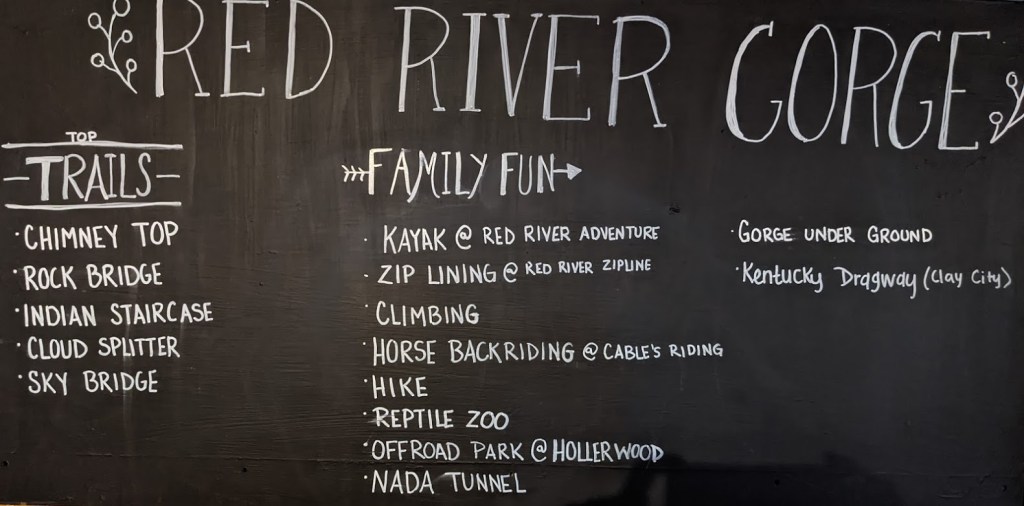 RED RIVER GORGE
TOP
TRAILS
· CHIMNEY TOP
· ROCK BRIDGE
· INDIAN STAIRCASE
· CLOUD SPLITTER
· SKY BRIDGE
FAMILY FUN
· KAYAK @ RED RIVER ADVENTURE
· ZIP LINING @ RED RIVER ZIPLINE
· CLIMBING
· HORSE BACKRIDING @ CABLE'S RIDING
· HIKE
· REPTILE ZOO
· OFFROAD PARK @ HOLLERWOOD
· NADA TUNNEL
· GORGE UNDER GROUND
· Kentucky Dragway (Clay City)